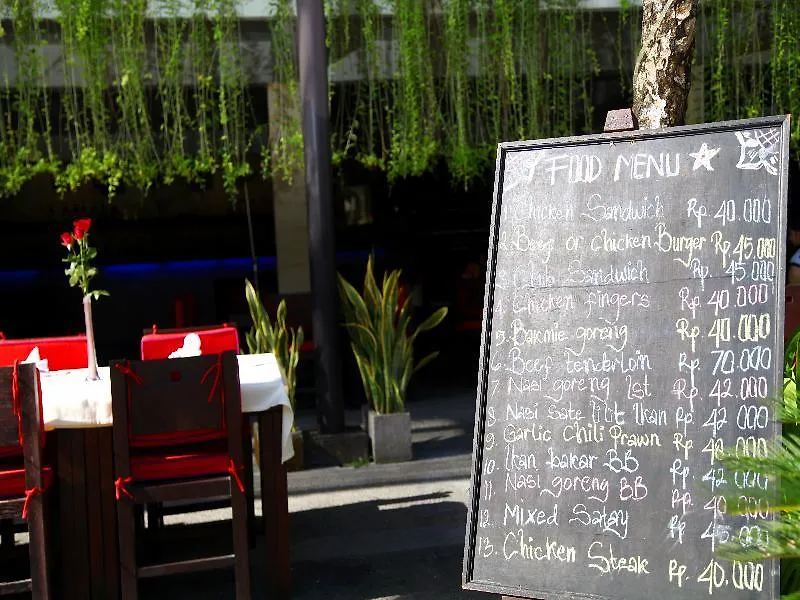 FOOD MENU
1. Chicken Sandwich Rp. 40.000
2. Beef or chicken Burger Rp. 45.000
3. Club Sandwich Rp. 45.000
4. Chicken fingers Rp. 40.000
5. Bakmie goreng Rp. 40.000
6. Beef tenderloin Rp. 70.000
7 Nasi goreng Ist Rp. 42.000
8 Nasi Sate lilit Ikan Rp. 42 000
9. Garlic Chili Prawn Rp 48 000
10. Ikan bakar BB Rp 42 000
11. Nasi goreng BB Rp 40 000
12. Mixed Satay Rp 45.000
13. Chicken Steak Rp. 40.000